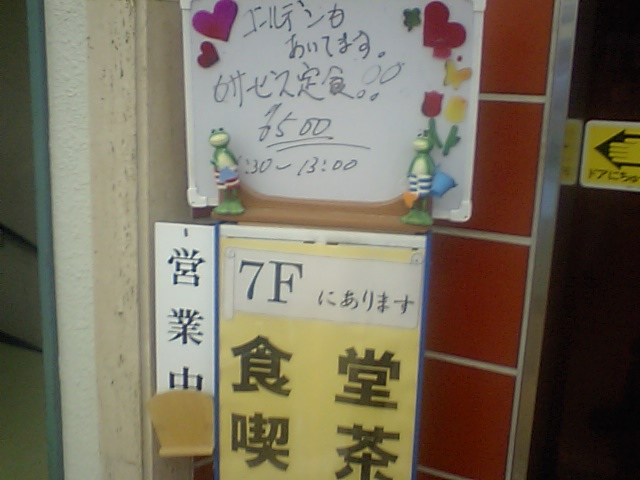 あいてます。
サービス定食
¥500
:30～13:00
営業中
7F にあります
食堂
喫茶
ドアにちゅ